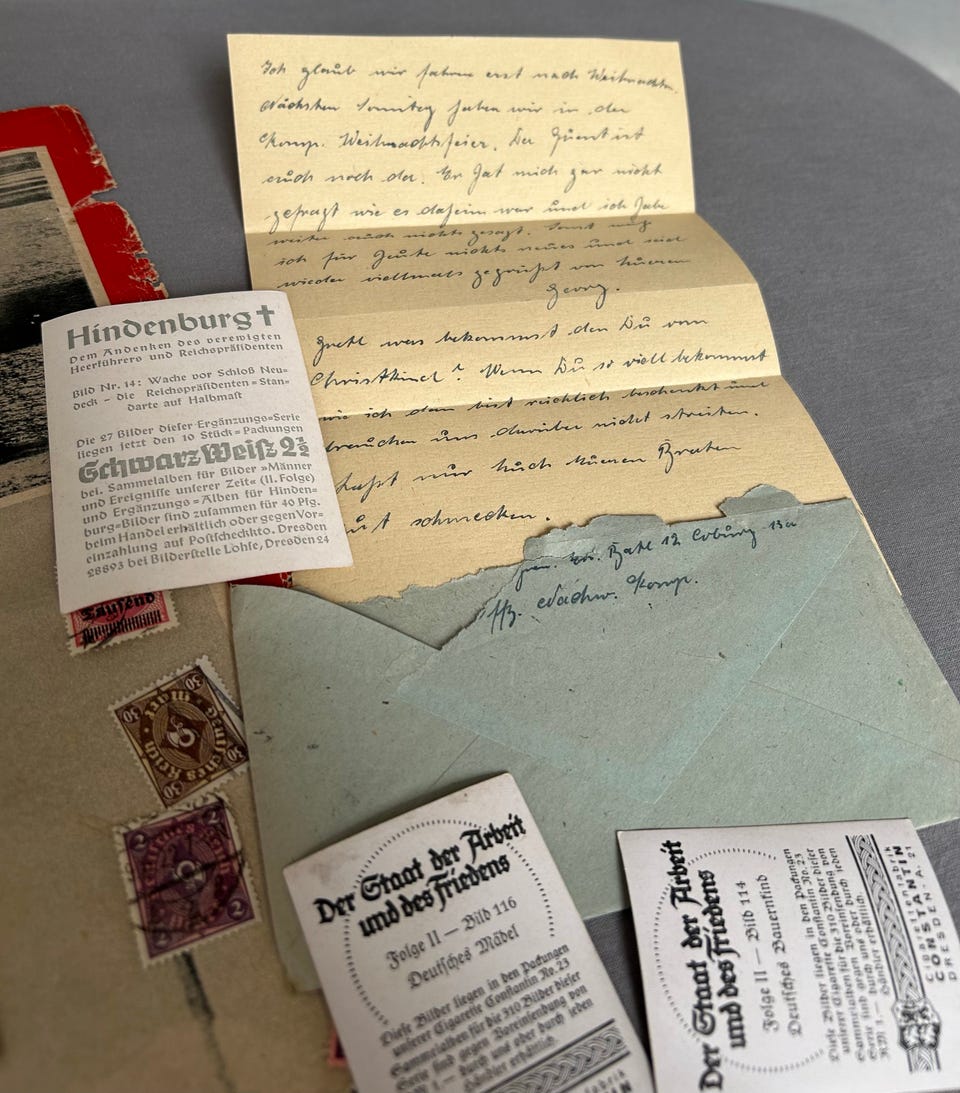 Ich glaub wir fahren erst nach Weihnachten.
Nächsten Sonntag haben wir in der
Komp. Weihnachtsfeier. Der Quent ist
auch noch da. Er hat mich gar nicht
gefragt wie es daheim war und ich habe
weiter auch nichts gesagt. Sonst weiß
ich für heute nichts neues und seid
wieder vielmals gegrüßt von Eueren
Georg.
Gretl was bekommst den Du vom
Christkind? Wenn Du so viel bekommst
wie ich dan bist reichlich beschenkt und
brauchen uns darüber nicht streiten.
Laßt nur Euch Eueren Braten
gut schmecken.
Hindenburg †
Dem Andenken des verewigten
Heerführers und Reichspräsidenten
Bild Nr. 14: Wache vor Schloß Neu-
deck - die Reichspräsidenten-Stan-
darte auf Halbmast
Die 27 Bilder dieser Ergänzungs-Serie
liegen jetzt den 10 Stück-Packungen
Schwarz Weiß 2½
bei. Sammelalben für Bilder »Männer
und Ereignisse unserer Zeit« (II. Folge)
und Ergänzungs-Alben für Hinden-
burg-Bilder sind zusammen für 40 Pfg.
beim Handel erhältlich oder gegen Vor-
einzahlung auf Postscheckkto. Dresden
28893 bei Bilderstelle Lohse, Dresden 24
Batl 12 Coburg 13a
Nachr. Komp.
Tausend
30
30
30
Deutsches Reich
Mark
2
2
2
2
Der Staat der Arbeit
und des Friedens
Folge II — Bild 116
Deutsches Mädel
Diese Bilder liegen in den Packungen
unserer Cigarette Constantin No. 23
Sammelalben für die 310 Bilder dieser
Serie sind gegen Voreinsendung von
RM 1.— durch uns oder durch jeden
Händler erhältlich.
Der Staat der Arbeit
und des Friedens
Folge II — Bild 114
Deutsches Bauernkind
Diese Bilder liegen in den Packungen
unserer Cigarette Constantin No. 23
Sammelalben für die 310 Bilder dieser
Serie sind gegen Voreinsendung von
RM 1.— durch uns oder durch jeden
Händler erhältlich.
Cigarettenfabrik
CONSTANTIN
DRESDEN A. 21